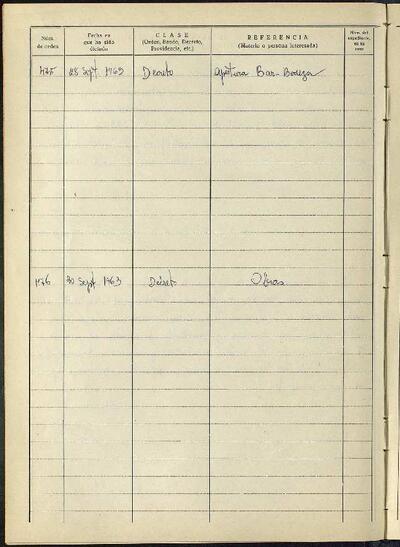 Núm. de orden
Fecha en que ha sido dictada
CLASE
(Orden, Bando, Decreto, Providencia, etc.)
REFERENCIA
(Materia o persona interesada)
Núm. del expediente, en su caso
475 28 Sept. 1963 Decreto apertura Bar-Bodega
476 30 Sept 1963 Decreto Obras